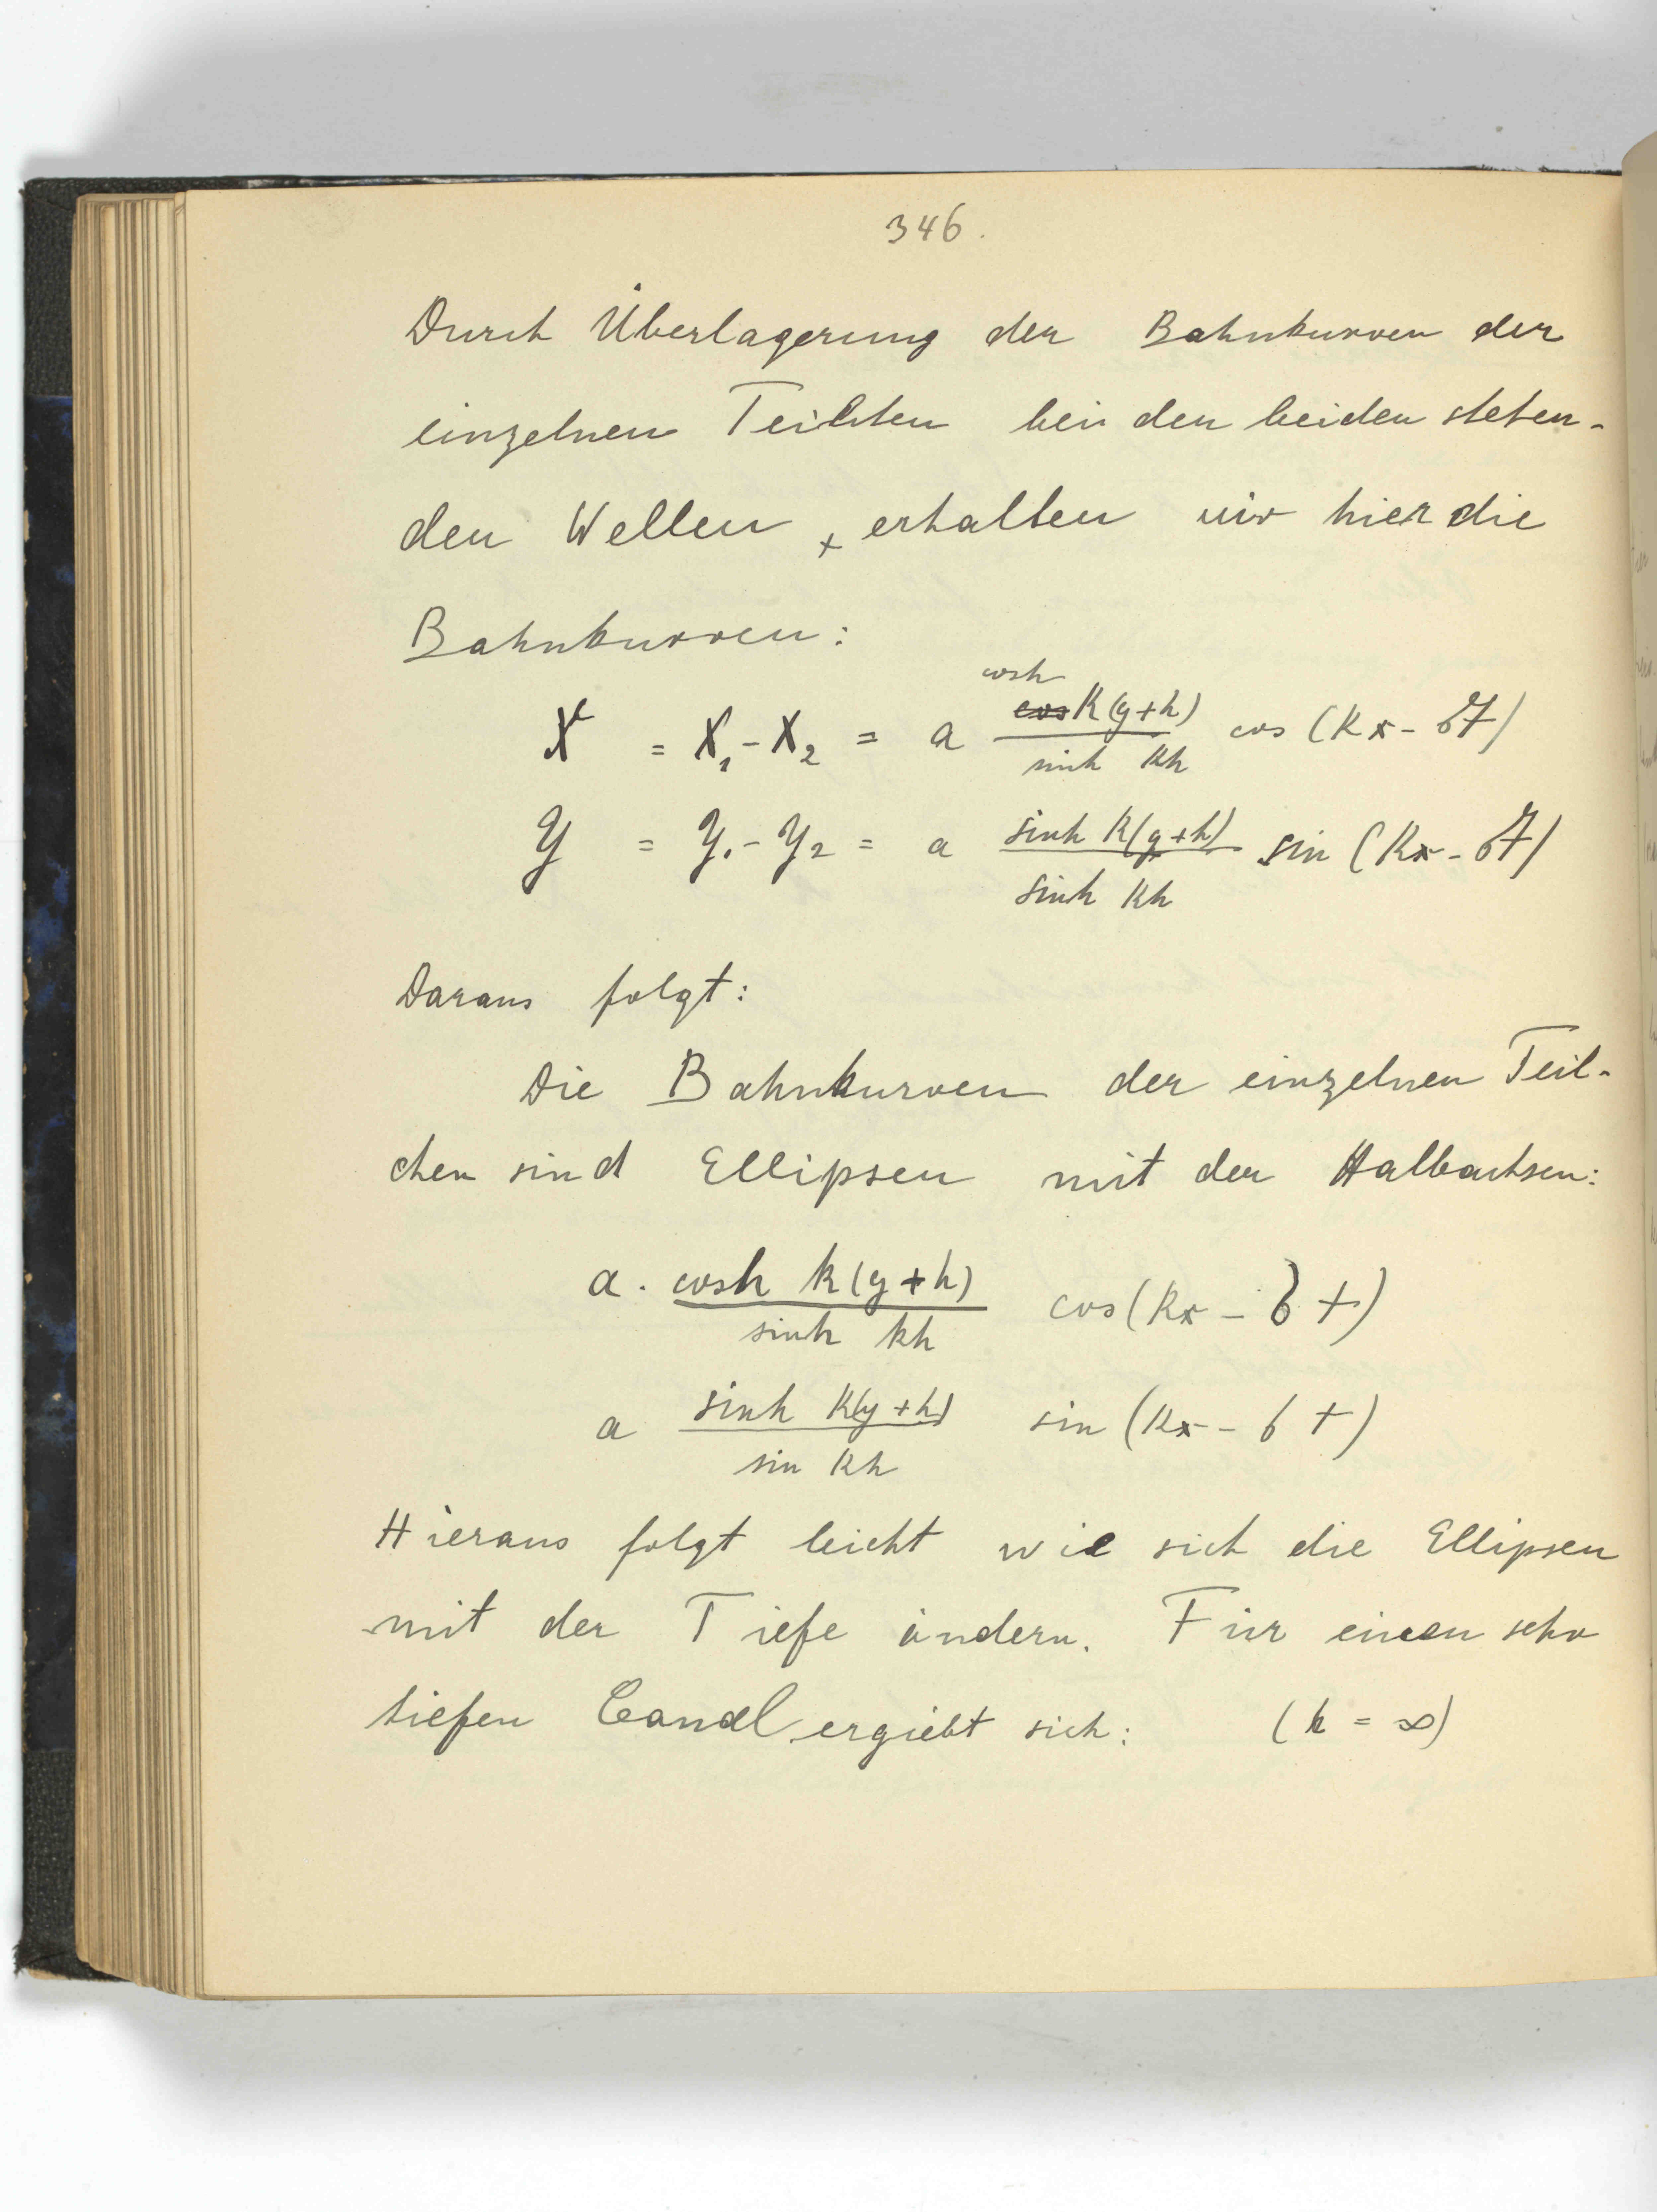 346.
Durch Überlagerung der Bahnkurven der
einzelnen Teilchen bei den beiden stehen-
den Wellen, erhalten wir hier die
Bahnkurven:
X = X₁ - X₂ = a cosh k(y+h) / sinh kh cos (kx - σt)
Y = Y₁ - Y₂ = a sinh k(y+h) / sinh kh sin (kx - σt)
Daraus folgt:
Die Bahnkurven der einzelnen Teil-
chen sind Ellipsen mit den Halbachsen:
a · cosh k(y+h) / sinh kh cos (kx - σt)
a sinh k(y+h) / sin kh sin (kx - σt)
Hieraus folgt leicht wie sich die Ellipsen
mit der Tiefe ändern. Für einen sehr
tiefen Canal ergiebt sich: (h = ∞)